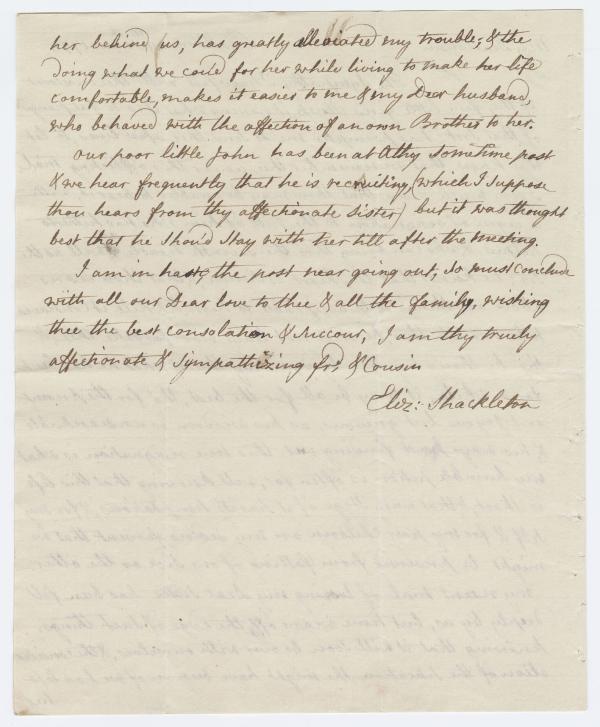 her behind us, has greatly alleviated my trouble; & the
doing what we could for her while living to make her life
comfortable, makes it easier to me & my Dear husband,
who behaved with the affection of an own Brother to her.
our poor little John has been at Athy sometime past
& we hear frequently that he is recruiting, (which I suppose
thou hears from thy affectionate sister) but it was thought
best that he should stay with her till after the meeting.
I am in haste, the post near going out, so must conclude
with all our Dear love to thee & all the family, wishing
thee the best consolation & succour, I am thy truely
affectionate & sympathizing frd. & Cousin
Eliz: Shackleton